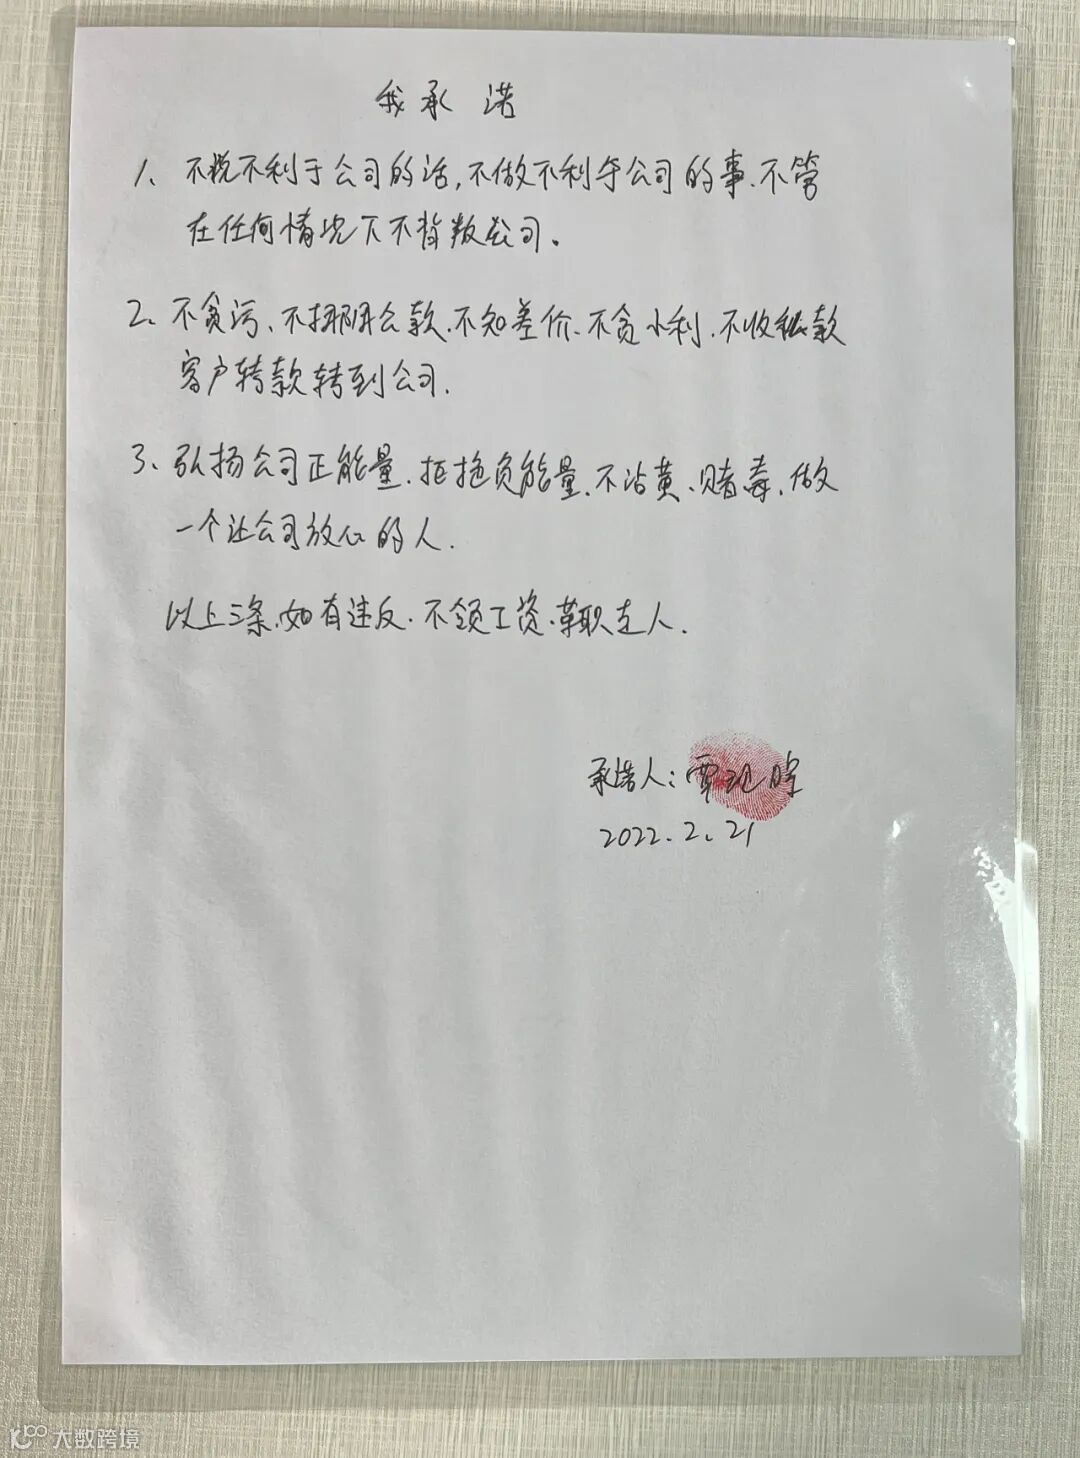 我承诺
1、不说不利于公司的话,不做不利于公司的事、不管
在任何情况下不背叛公司。
2、不贪污、不挪用公款、不知差价、不贪小利、不收私款
客户转款转到公司.
3、弘扬公司正能量、拒绝负能量、不沾黄、赌毒、做
一个让公司放心的人.
以上三条、如有违反、不领工资、革职走人.
承诺人:贾
2022.2.21
大数跨境